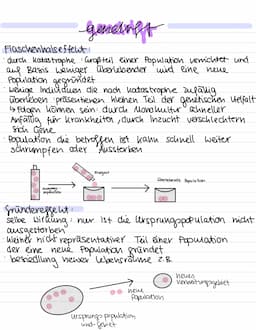 gendrift
Flaschenhalseffekt
· durch Katastrophe · Großteil einer Population vernichtet und
auf Basis weniger Überlebender wird eine neue
Population gegründet
· wenige Individuen die nach Katastrophe zufällig
überleben · präsentieren kleinen Teil der genetischen Vielfalt
↳ Folgen können sein: durch Monokultur schneller
Anfällig für Krankheiten, durch Inzucht verschlechtern
sich Gene
· Population die betroffen ist kann schnell weiter
schrumpfen oder Aussterben
Ereignis
Überlebende Population
Gründereffekt·
· selbe Wirkung · nur ist die Ursprungspopulation nicht
ausgestorben
· kleiner nicht repräsentativer Teil einer Population
der eine neue Population gründet
· besiedlung neuer Lebensräume z.B.
neue
Population
neues
Verbreitungsgebiet
Ursprungspopulation
und -gebiet